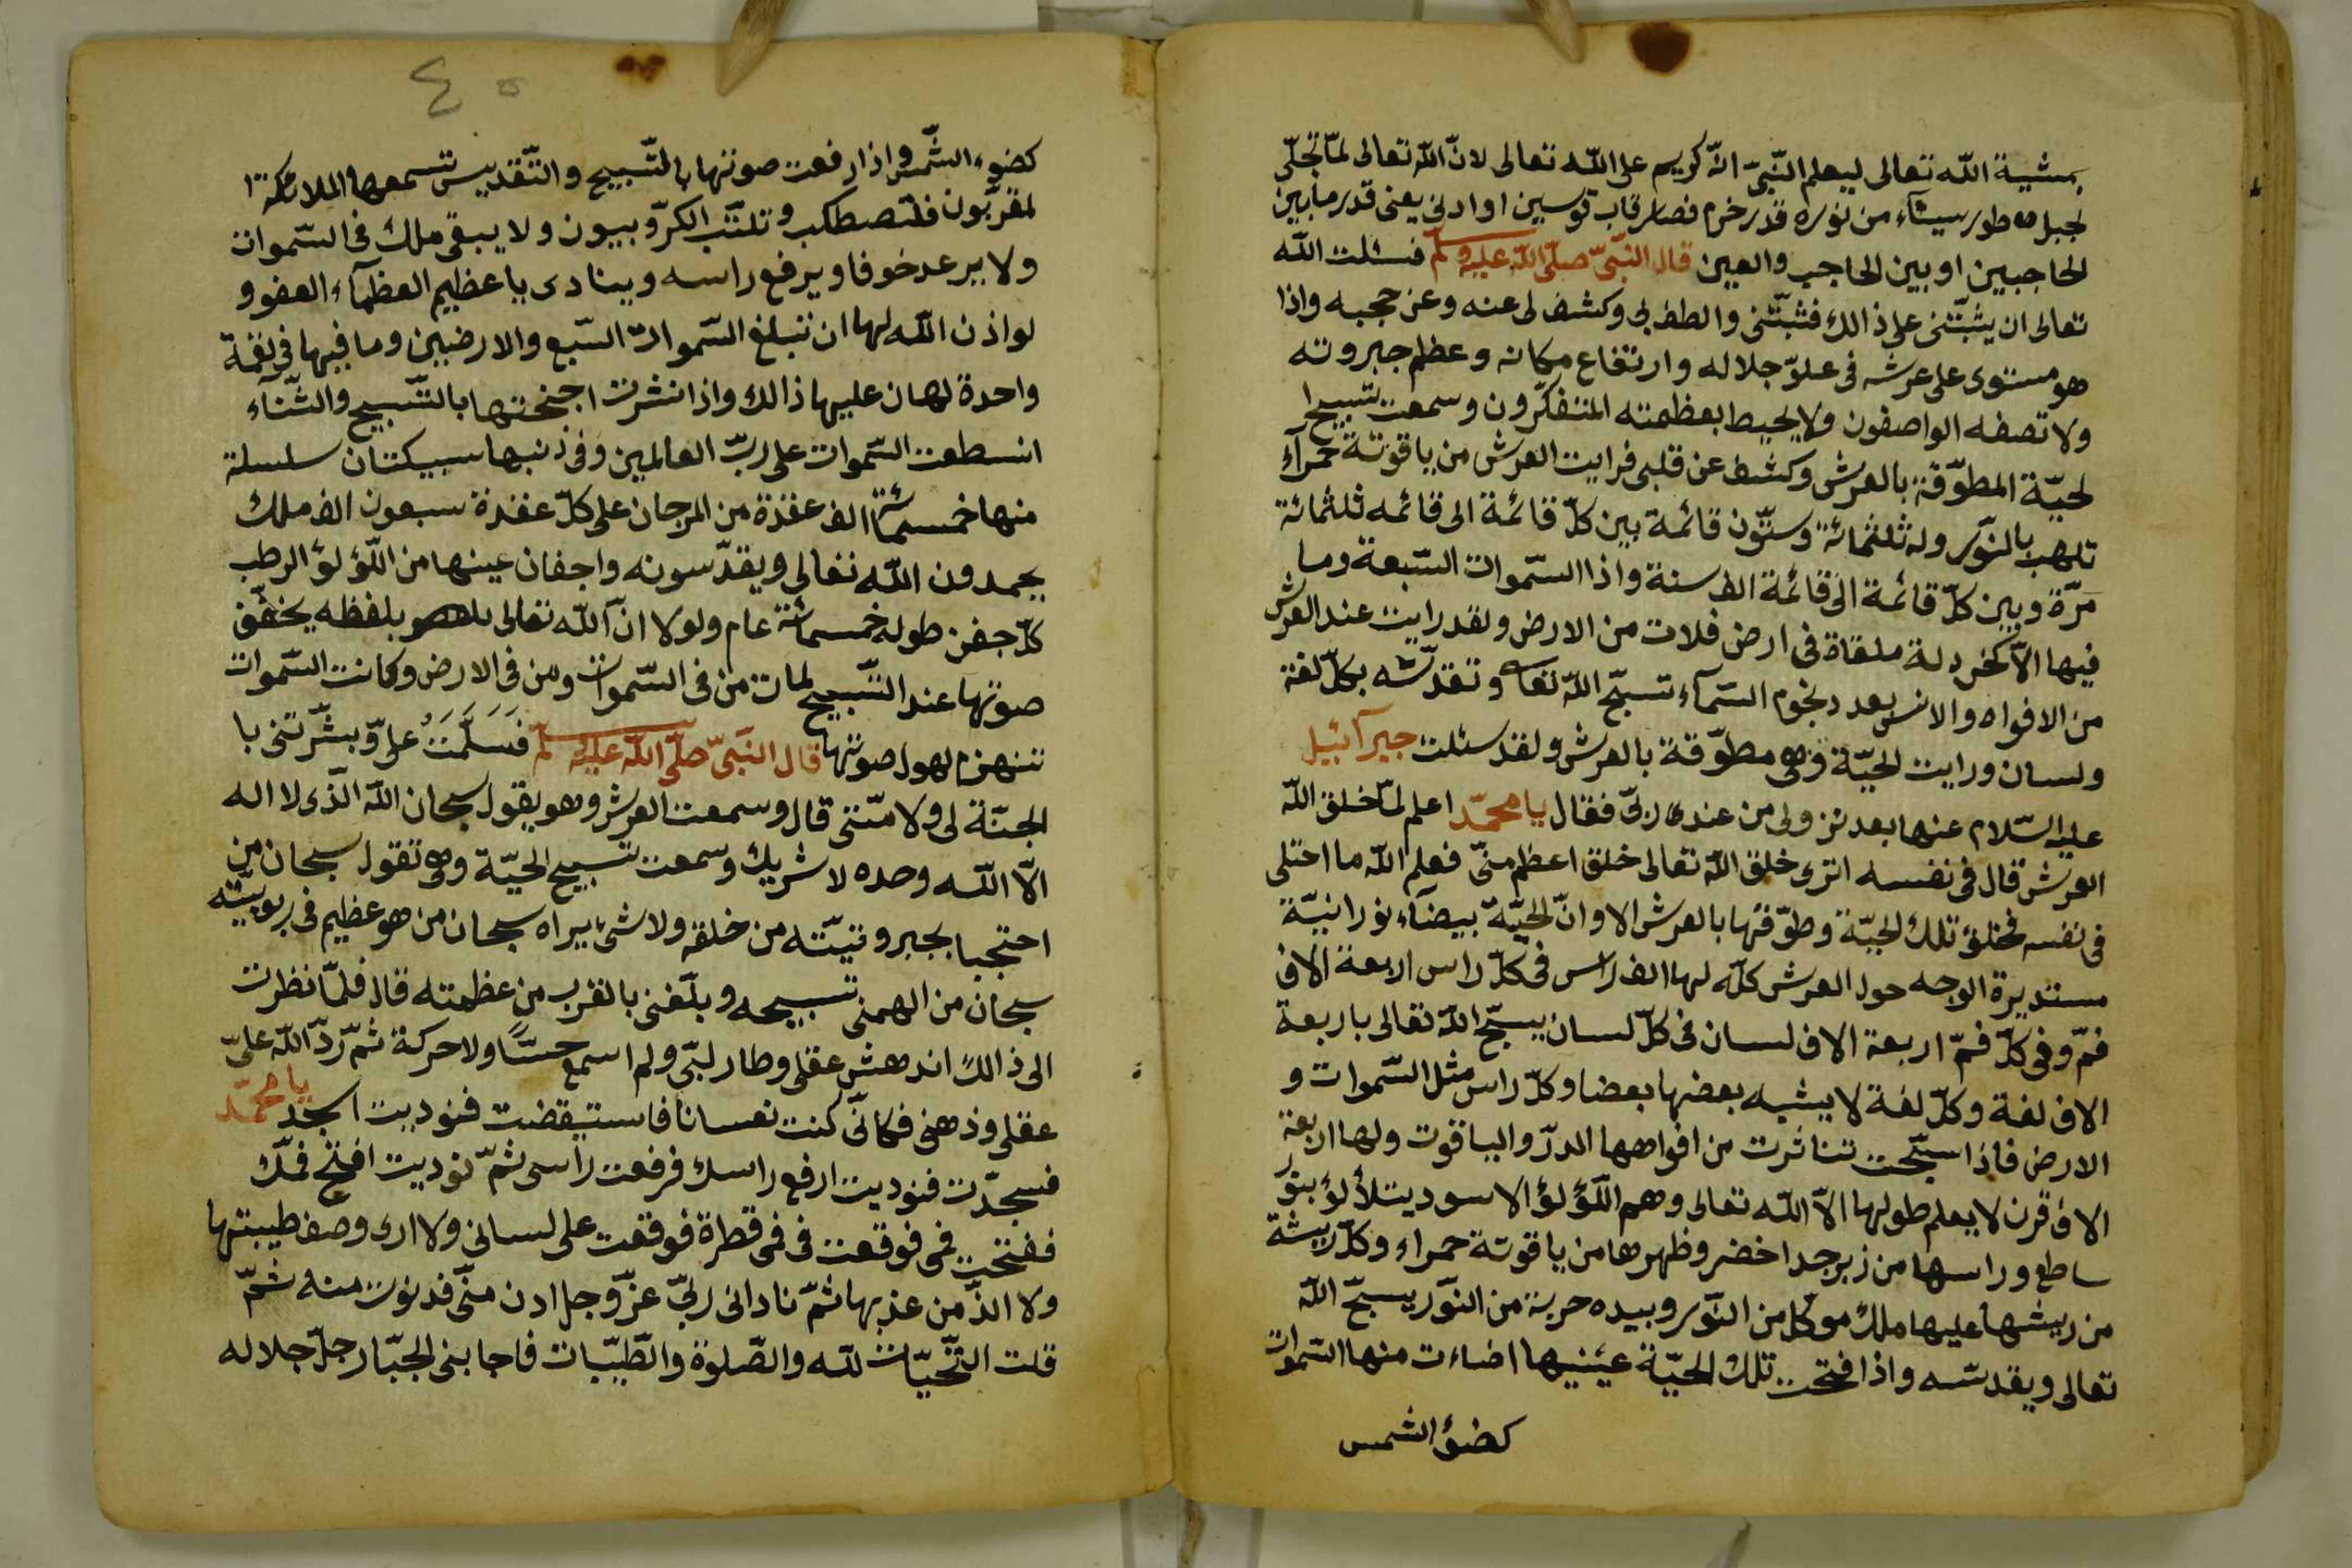 بمشية الله تعالى ليعلم النّبىّ انّه كريم على الله تعالى لانّ الله تعالى لمّا تجلّى
لجبل طور سيناء من نوره قدر خرم فصار قاب قوسين او ادنى يعنى قدر ما بين
الحاجبين او بين الحاجب والعين قال النّبىّ صلّى الله عليه وسلّم فسئلت الله
تعالى ان يثبّتنى على ذالك فثبّتنى والطف بى وكشف لى عنه وعن حجبه واذا
هو مستوى على عرشه فى علوّ جلاله وارتفاع مكانه وعظم جبروته
ولا تصفه الواصفون ولا يحيط بعظمته المتفكّرون وسمعت تسبيح ا
لحيّة المطوّقة بالعرش وكشف عن قلبى فرايت العرش من ياقوتة حمرآء
تلهب بالنّور وله ثلثمائة وستّون قائمة بين كلّ قائمة الى قائمه ثلثمائة
مرّة وبين كلّ قائمة الى قائمة الف سنة واذا السّموات السّبعة وما
فيها الاّ كخردلة ملقاة فى ارض فلات من الارض ولقد رايت عند العرش
من الافواه والالسن بعدد نجوم السّمآء تسبّح الله تعالى وتقدّسه بكلّ لغة
ولسان ورايت الحيّة وهى مطوّقة بالعرش ولقد سئلت جبرآئيل
عليه السّلام عنها بعد نزولى من عند ربّى فقال يا محمّد اعلم لمّا خلق الله
العرش قال فى نفسه اترى خلق الله تعالى خلق اعظم منّى فعلم الله ما اختلى
فى نفسه فخلق تلك الحيّة وطوّقها بالعرش الا وانّ الحيّة بيضآء نورانيّة
مستديرة الوجه حول العرش كلّه لها الف راس فى كلّ راس اربعة الاف
فمّ وفى كلّ فمّ اربعة الاف لسان فى كلّ لسان يسبّح الله تعالى باربعة
الاف لغة وكلّ لغة لا يشبه بعضها بعضا وكلّ راس مثل السّموات و
الارض فاذا سبّحت تناثرت من افواهها الدرّ والياقوت ولها اربعة
الاف قرن لا يعلم طولها الاّ الله تعالى وهم اللّؤلؤ الاسود يتلألؤ بنور
ساطع وراسها من زبرجد اخضر وظهرها من ياقوتة حمراء وكلّ ريشة
من ريشها عليها ملك موكل من النّور وبيده حربة من النّور يسبّح الله
تعالى ويقدسّه واذا فتحت تلك الحيّة عينيها اضاءت منها السّموات
كضؤ الشمس
٤٥
كضوء الشّمس واذا رفعت صوتها بالتّسبيح والتّقديس تسمعها الملائكة ا
لمقرّبون فلتصطكب وتلتّب الكرّوبيون ولا يبقى ملك فى السّموات
ولا يرعد خوفا ويرفع راسه وينادى يا عظيم العظمآء العفو و
لو اذن الله لها ان تبلغ السّموات السّبع والارضيين وما فيها فى لقمة
واحدة لهان عليها ذالك واذا نشرت اجنحتها بالتّسبيح والثّنآء
انسطعت السّموات على ربّ العالمين وفى ذنبها سبيكتان سلسلة
منها خمسمائة الف عقدة من المرجان على كلّ عقدة سبعون الف ملك
يحمدون الله تعالى ويقدّسونه واجفان عينها من اللّؤلؤ الرطب
كلّ جفن طوله خمسمائة عام ولولا انّ الله تعالى بلفظه يخفّف
صوتها عند التّسبيح لمات من فى السّموات ومن فى الارض وكانت السّموات
تنهزم لهول صوتها قال النّبىّ صلّى الله عليه وسلّم فسلّمت علىّ وبشّرتنى با
لجنّة لى ولامّتى قال وسمعت العرش وهو يقول سبحان الله الّذى لا اله
الاّ الله وحده لا شريك وسمعت تسبيح الحيّة وهى تقول سبحان من
احتجبا بجبروتيّته من خلقه ولا شىء يراه سبحان من هو عظيم فى ربوبيّته
سبحان من الهمنى تسبيحه وبلّغنى بالقرب من عظمته قال فلمّا نظرت
الى ذالك اندهش عقلى وطار لبّى ولم اسمع حسّا ولا حركة ثمّ ردّ الله علىّ
عقلى وذهنى فكانّى كنت نعسانا فاستيقضت فنوديت اسجد يا محمّد
فسجدّت فنوديت ارفع راسك فرفعت راسى ثمّ نوديت افتح فمّك
ففتحت فمى فوقعت فى فمى قطرة فوقعت على لسانى ولا ارى وصف طيبتها
ولا الذّ من عذبها ثمّ نادانى ربّى عزّ وجل ادن منّى فدنوت منه ثمّ
قلت التّحيّات لله والصّلوة والطّيّبات فاجابنى الجبّار جلّ جلاله